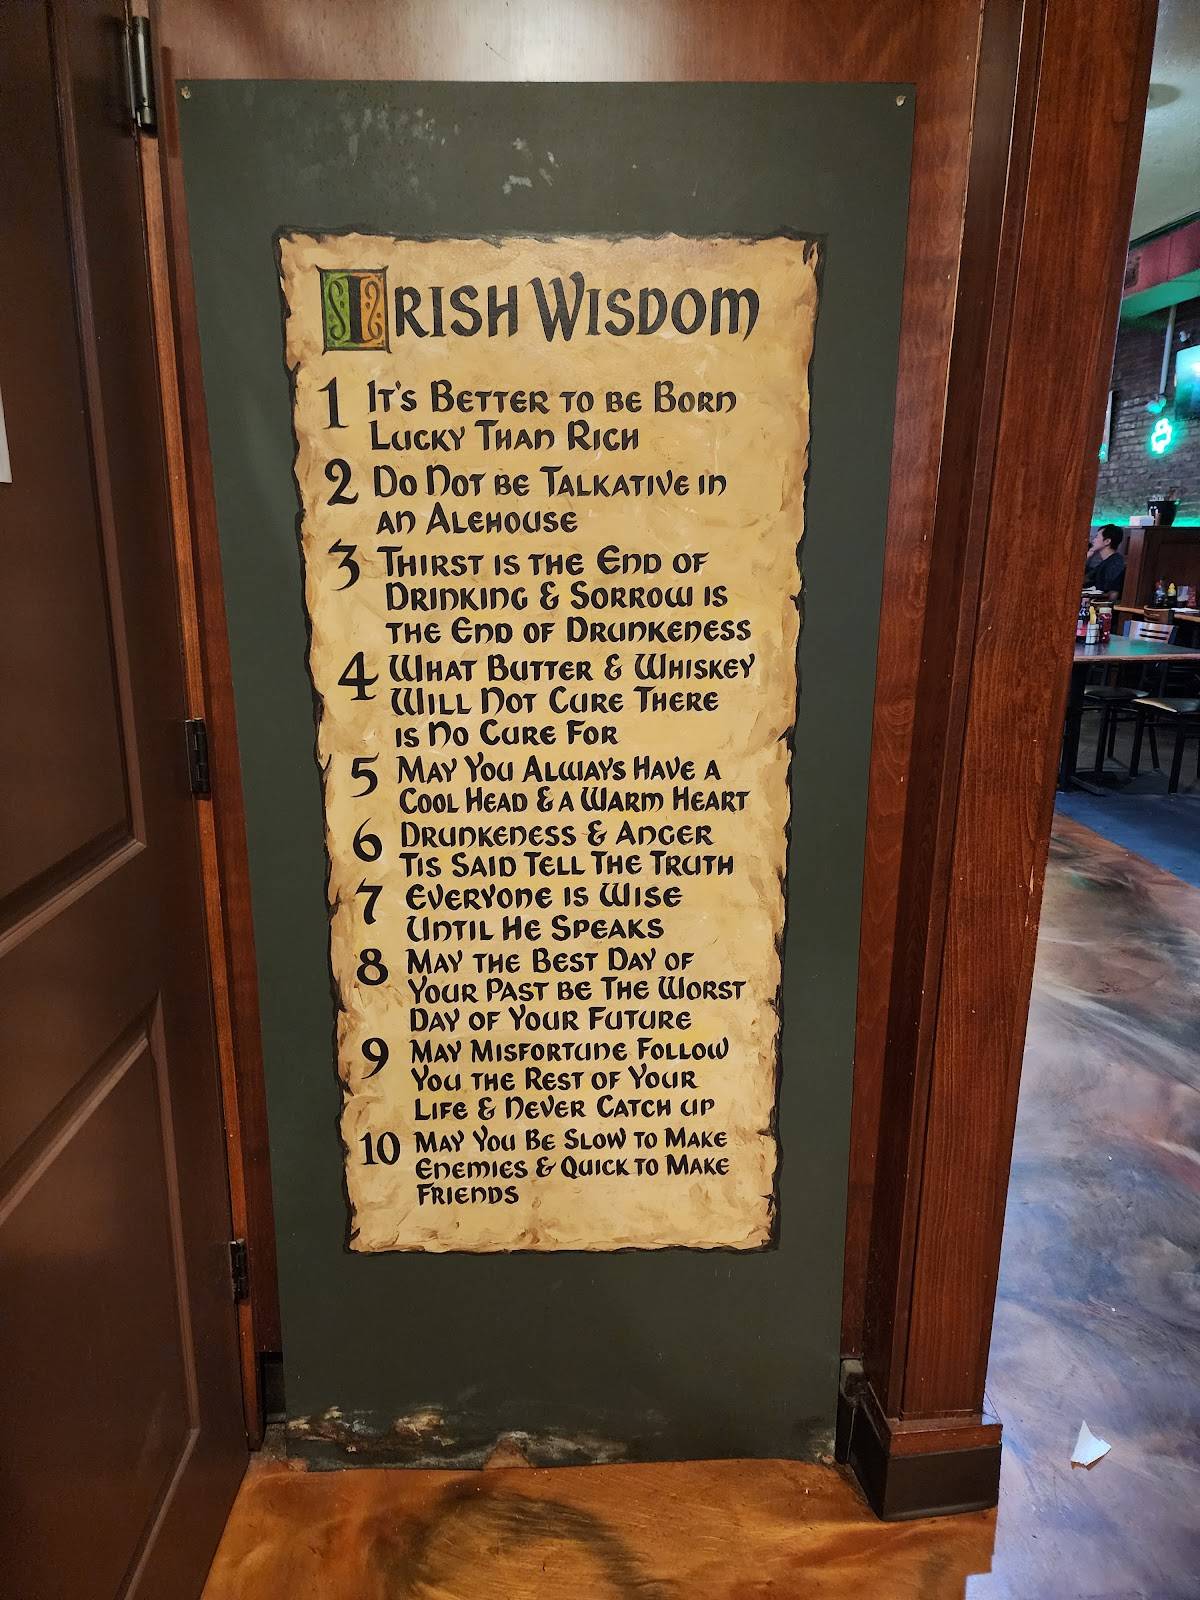 IRISH WISDOM
1 IT'S BETTER TO BE BORN
LUCKY THAN RICH
2 DO NOT BE TALKATIVE IN
AN ALEHOUSE
3 THIRST IS THE END OF
DRINKING & SORROW IS
THE END OF DRUNKENESS
4 WHAT BUTTER & WHISKEY
WILL NOT CURE THERE
IS NO CURE FOR
5 MAY YOU ALWAYS HAVE A
COOL HEAD & A WARM HEART
6 DRUNKENESS & ANGER
TIS SAID TELL THE TRUTH
7 EVERYONE IS WISE
UNTIL HE SPEAKS
8 MAY THE BEST DAY OF
YOUR PAST BE THE WORST
DAY OF YOUR FUTURE
9 MAY MISFORTUNE FOLLOW
YOU THE REST OF YOUR
LIFE & NEVER CATCH UP
10 MAY YOU BE SLOW TO MAKE
ENEMIES & QUICK TO MAKE
FRIENDS